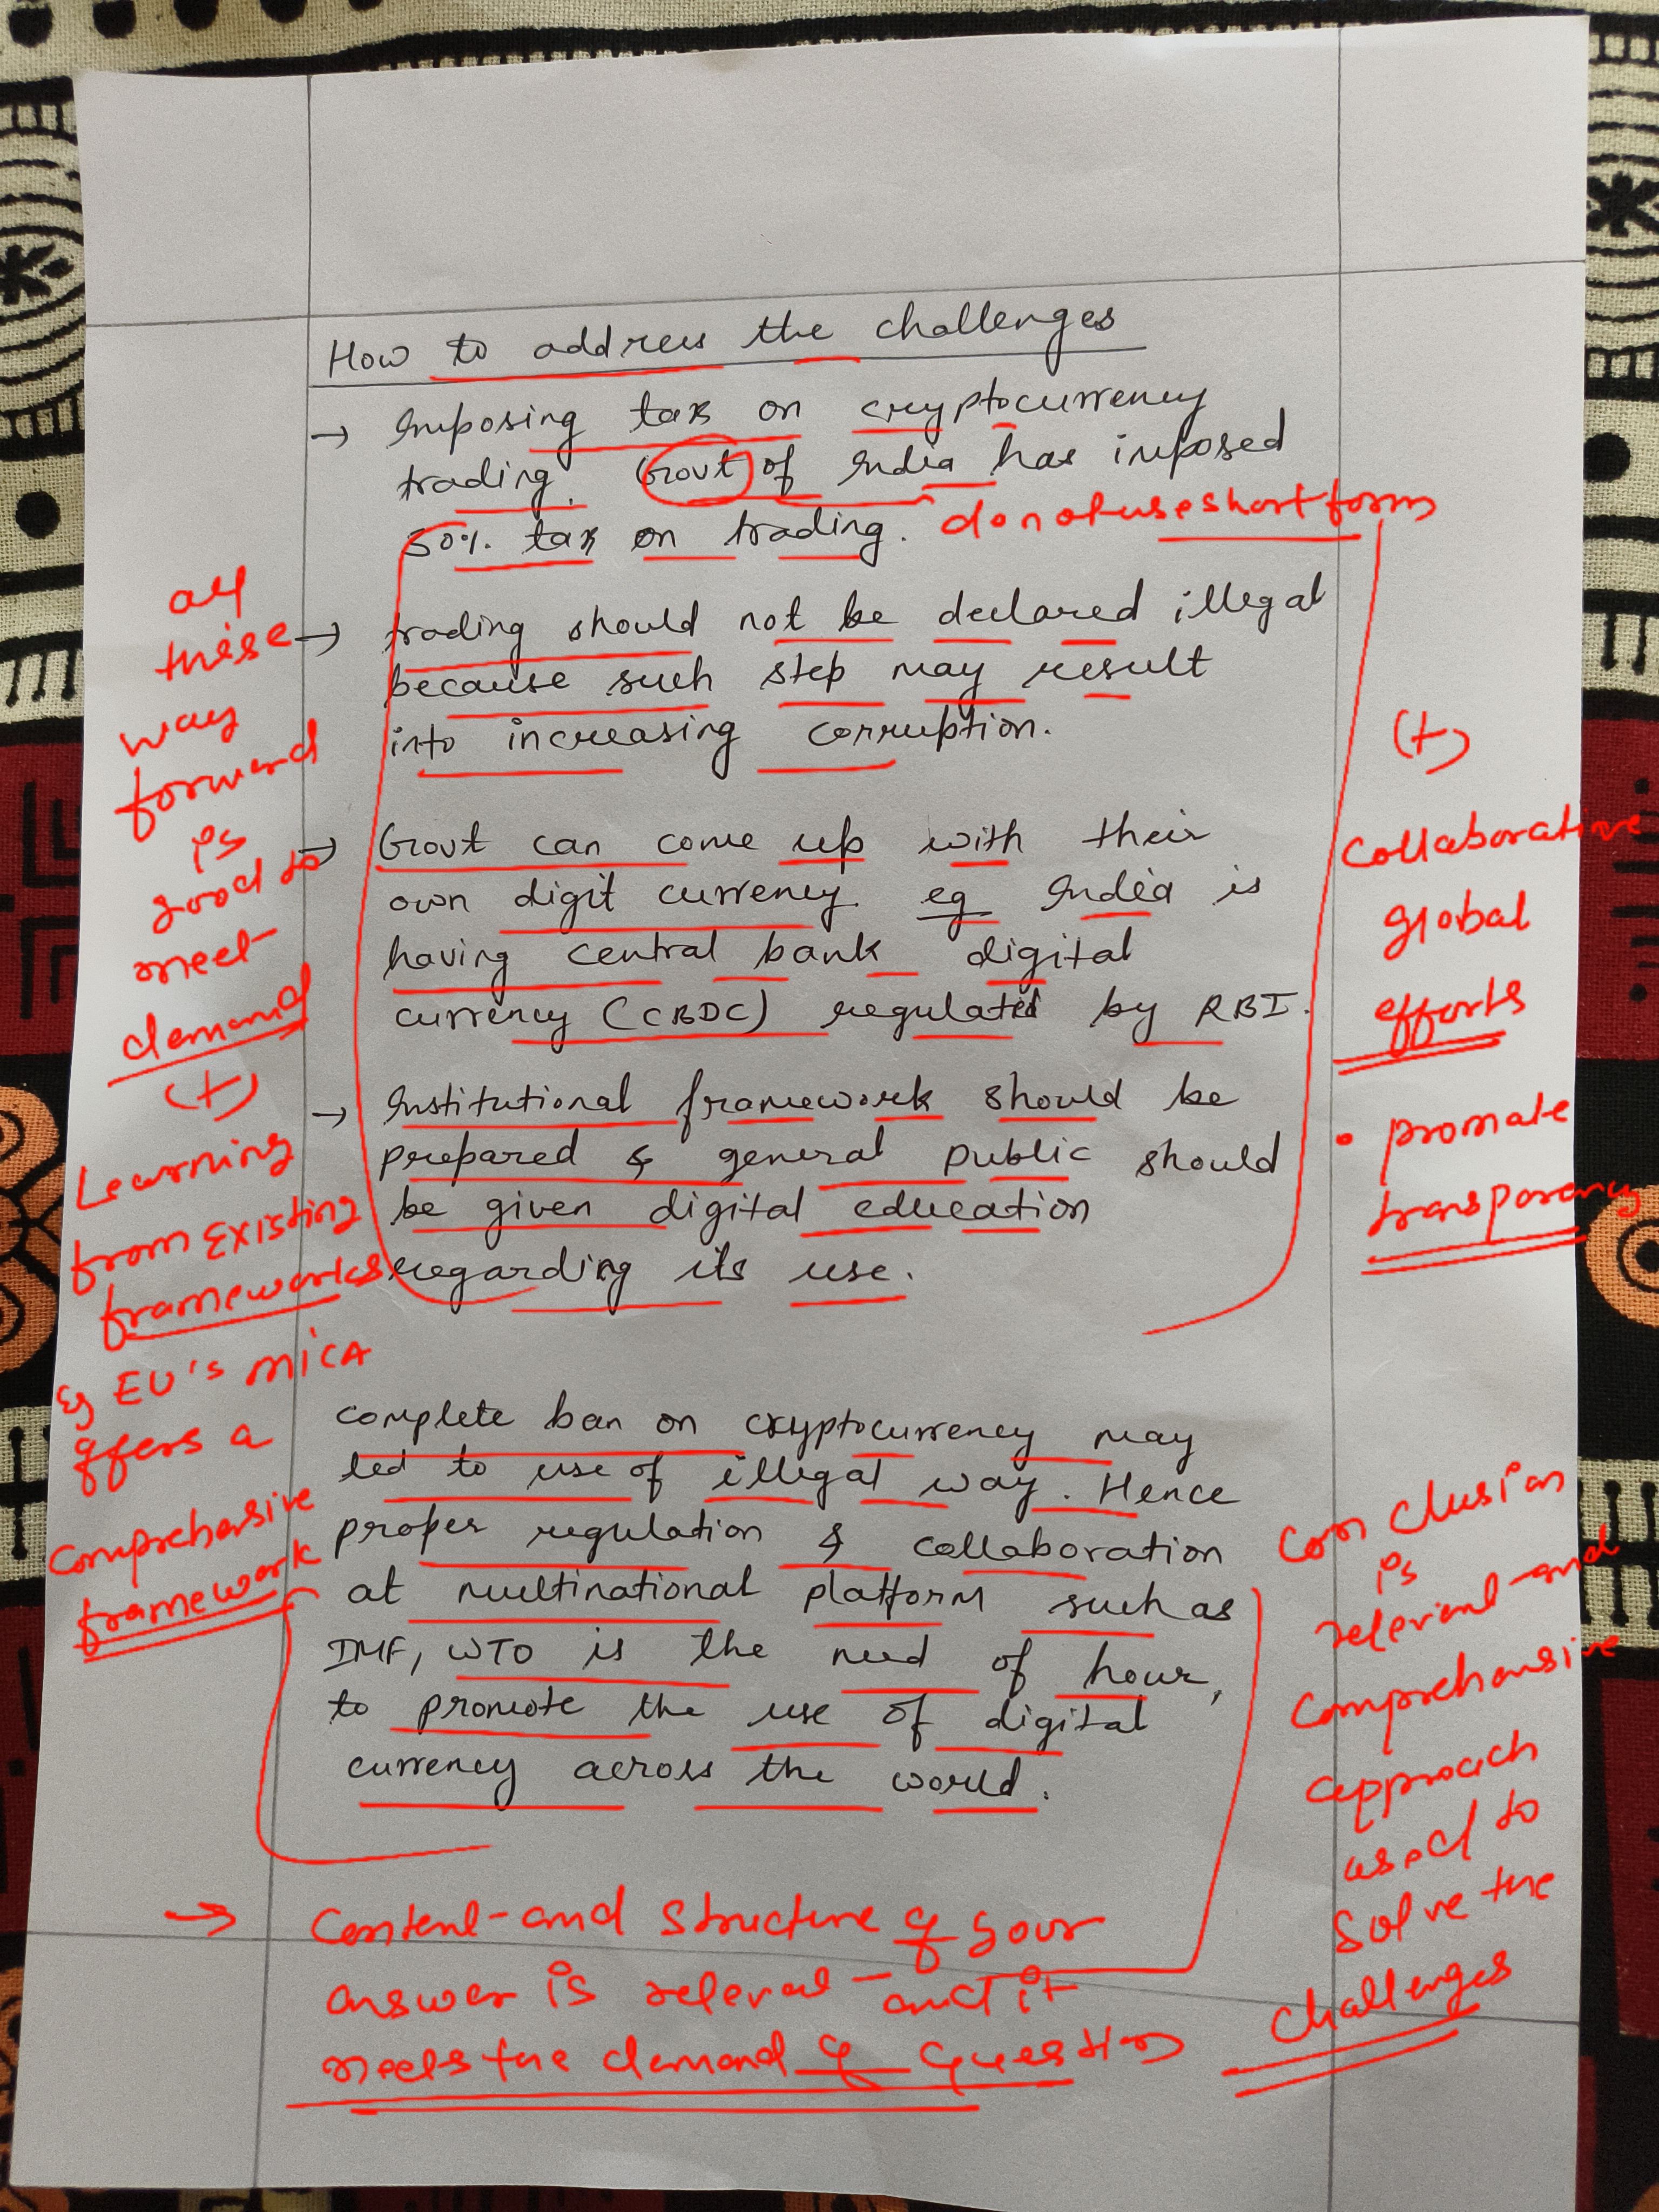 How to address the challenges
→ Imposing tax on cryptocurrency
trading. Govt of India has imposed
30% tax on trading.
do not use short forms
→ trading should not be declared illegal
because such step may result
into increasing corruption.
→ Govt can come up with their
own digit currency eg India is
having central bank digital
currency (CBDC) regulated by RBI.
→ Institutional framework should be
prepared & general public should
be given digital education
regarding its use.
complete ban on cryptocurrency may
led to use of illegal way. Hence
proper regulation & collaboration
at multinational platform such as
IMF, WTO is the need of hour,
to promote the use of digital
currency across the world.
all
these
way
forward
is
good to
meet
demand
(+)
Learning
from Existing
frameworks
Eg EU's MICA
offers a
comprehensive
framework
(+)
Collaborative
global
efforts
• promote
transparency
Conclusion
is
relevant and
comprehensive
approach
used to
solve the
challenges
→ Content and structure of your
answer is relevant and it
meets the demand of question